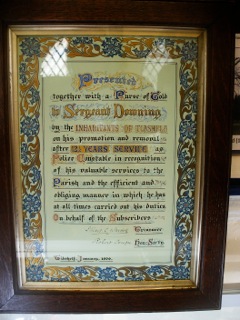 Presented
together with a Purse of Gold
to Sergeant Downing
by the INHABITANTS OF
on his promotion and removal
after YEARS SERVICE as
Police Constable in recognition
of his valuable services to the
Parish and the efficient and
obliging manner in which he has
at all times carried out his duties
On behalf of the Subscribers
Treasurer
Hon. Secty.
January, 1909.